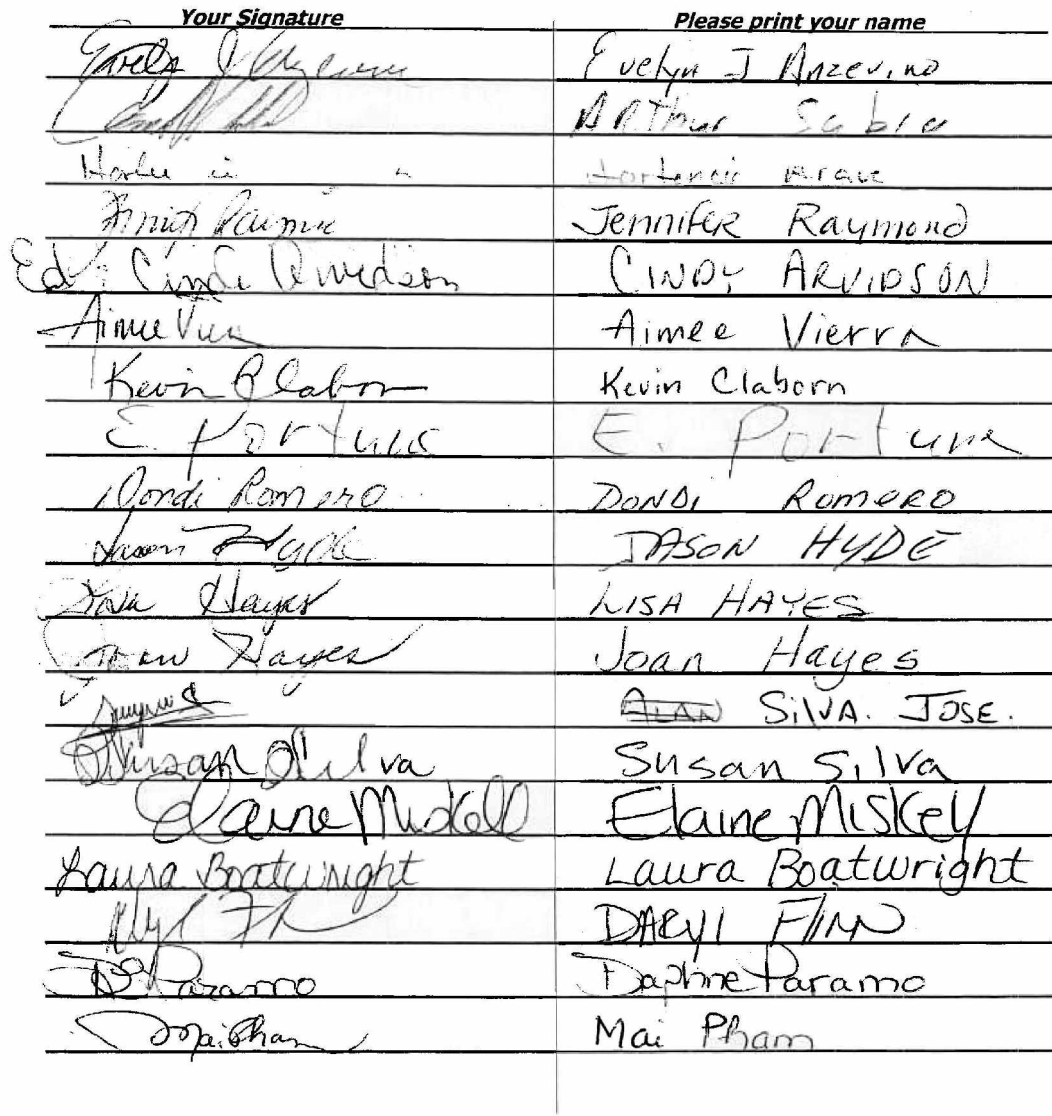 Your Signature Please print your name
Evelyn J Anzevino
Arthur
Hortencia
Jennifer Raymond
Ed & Cindi Arvidson CINDY ARVIDSON
Aimee Aimee Vierra
Kevin Claborn Kevin Claborn
E. Fortuna E. Fortuna
Dondi Romero DONDI ROMERO
Jason Hyde JASON HYDE
Lisa Hayes LISA HAYES
Joan Hayes Joan Hayes
ALAN SILVA. JOSE.
Susan Silva Susan Silva
Elaine Elaine Miskell
Laura Boatwright Laura Boatwright
DARYl FlINN
D Paramo Daphne Paramo
Mai Pham Mai Pham